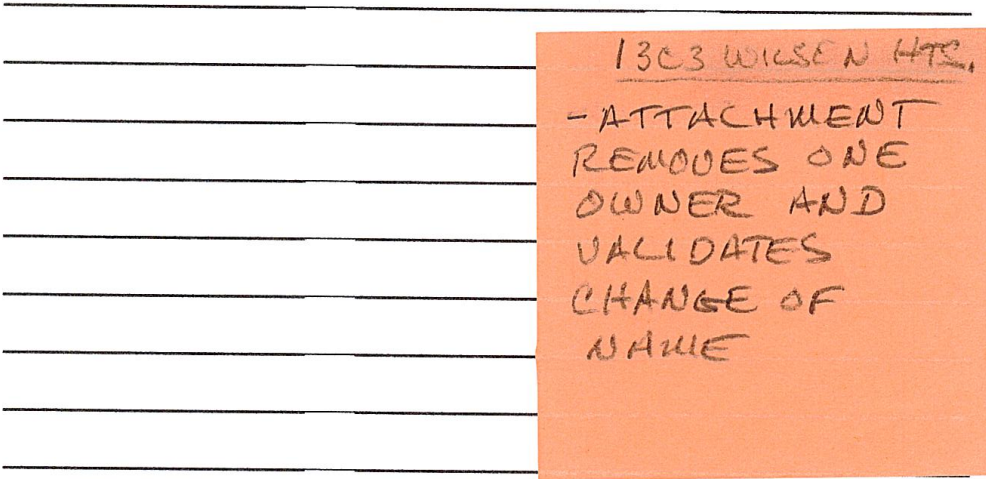 13C3 WILSEN HTS.
- ATTACHMENT
REMOVES ONE
OWNER AND
VALIDATES
CHANGE OF
NAME